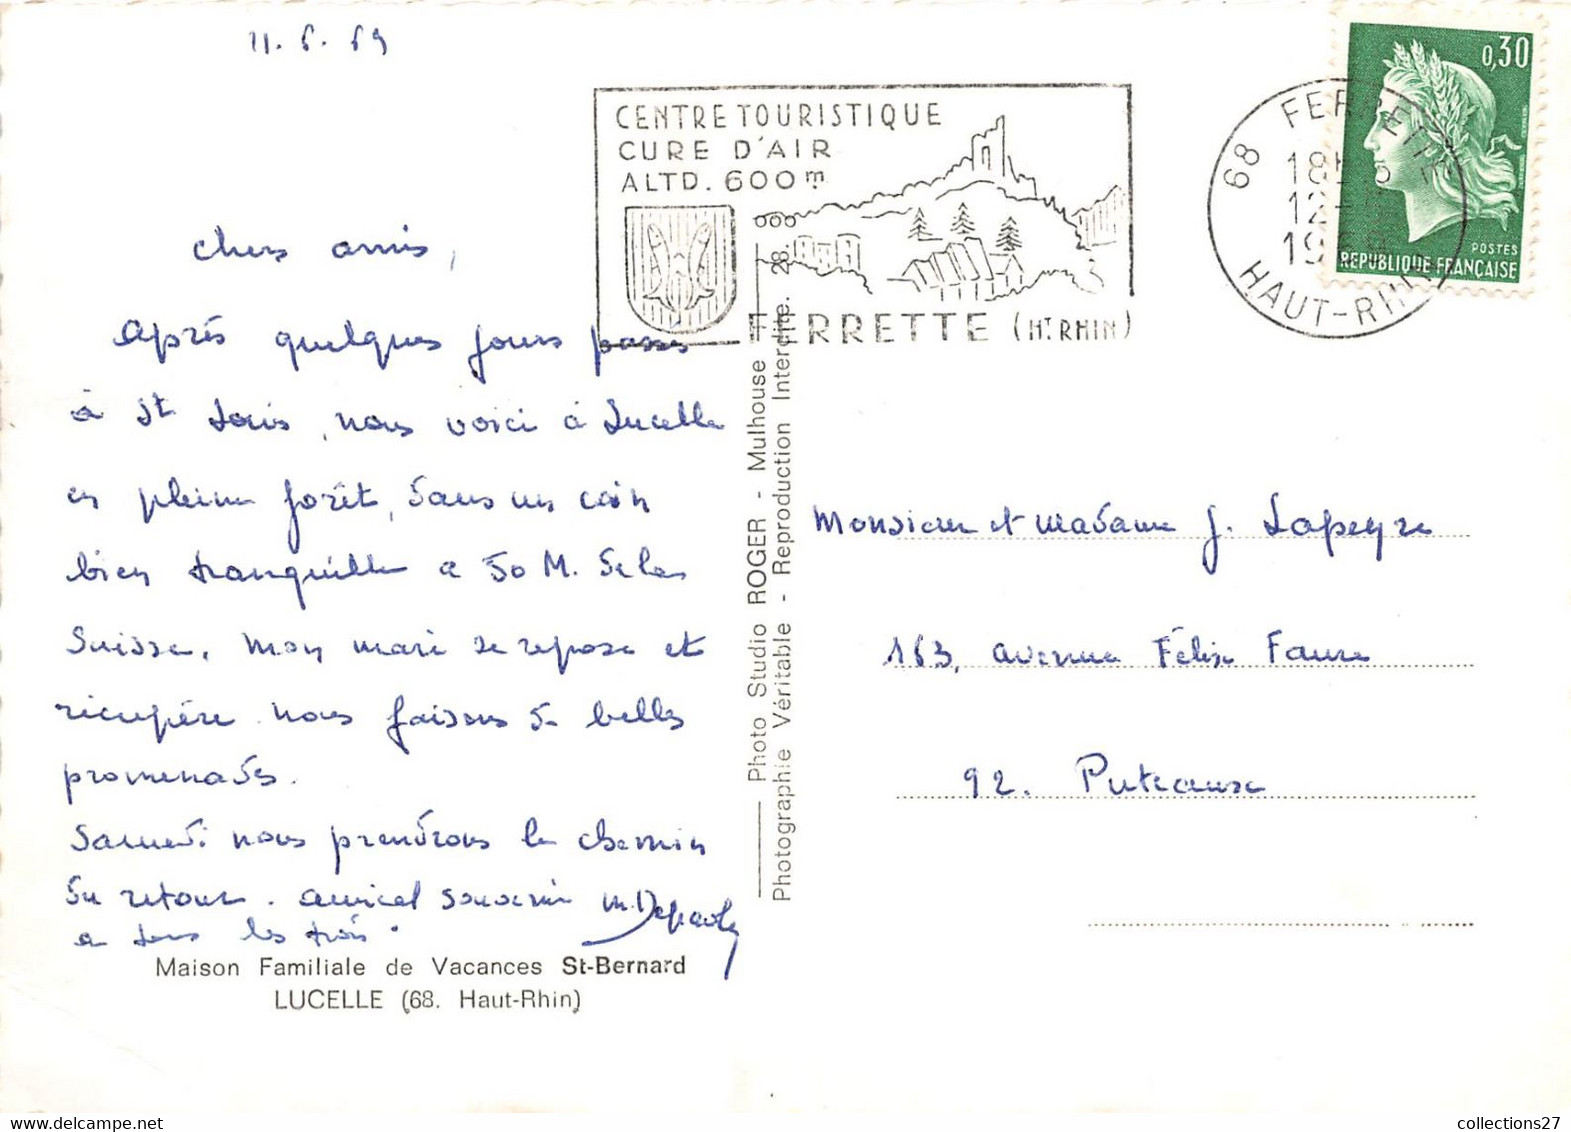 11.6.69
CENTRE TOURISTIQUE
CURE D'AIR
ALTD. 600m
FERRETTE (HT RHIN)
68 FERRETTE
18H
12-6
1969
HAUT-RHIN
0,30
POSTES
REPUBLIQUE FRANÇAISE
Chers amis,
Après quelques jours passés
à St Louis, nous voici à Lucelle
en pleine forêt, dans un coin
bien tranquille a 50 M. de la
Suisse. Mon mari se repose et
récupère. nous faisons de belles
promenades.
Samedi nous prendrons le chemin
du retour. amical souvenir
a tous les trois.
Maison Familiale de Vacances St-Bernard
LUCELLE (68. Haut-Rhin)
Photo Studio ROGER - Mulhouse
Photographie Véritable - Reproduction Interdite. 28.
Monsieur et Madame J. Lapeyre
163, avenue Félix Faure
92. Puteaux
collections27